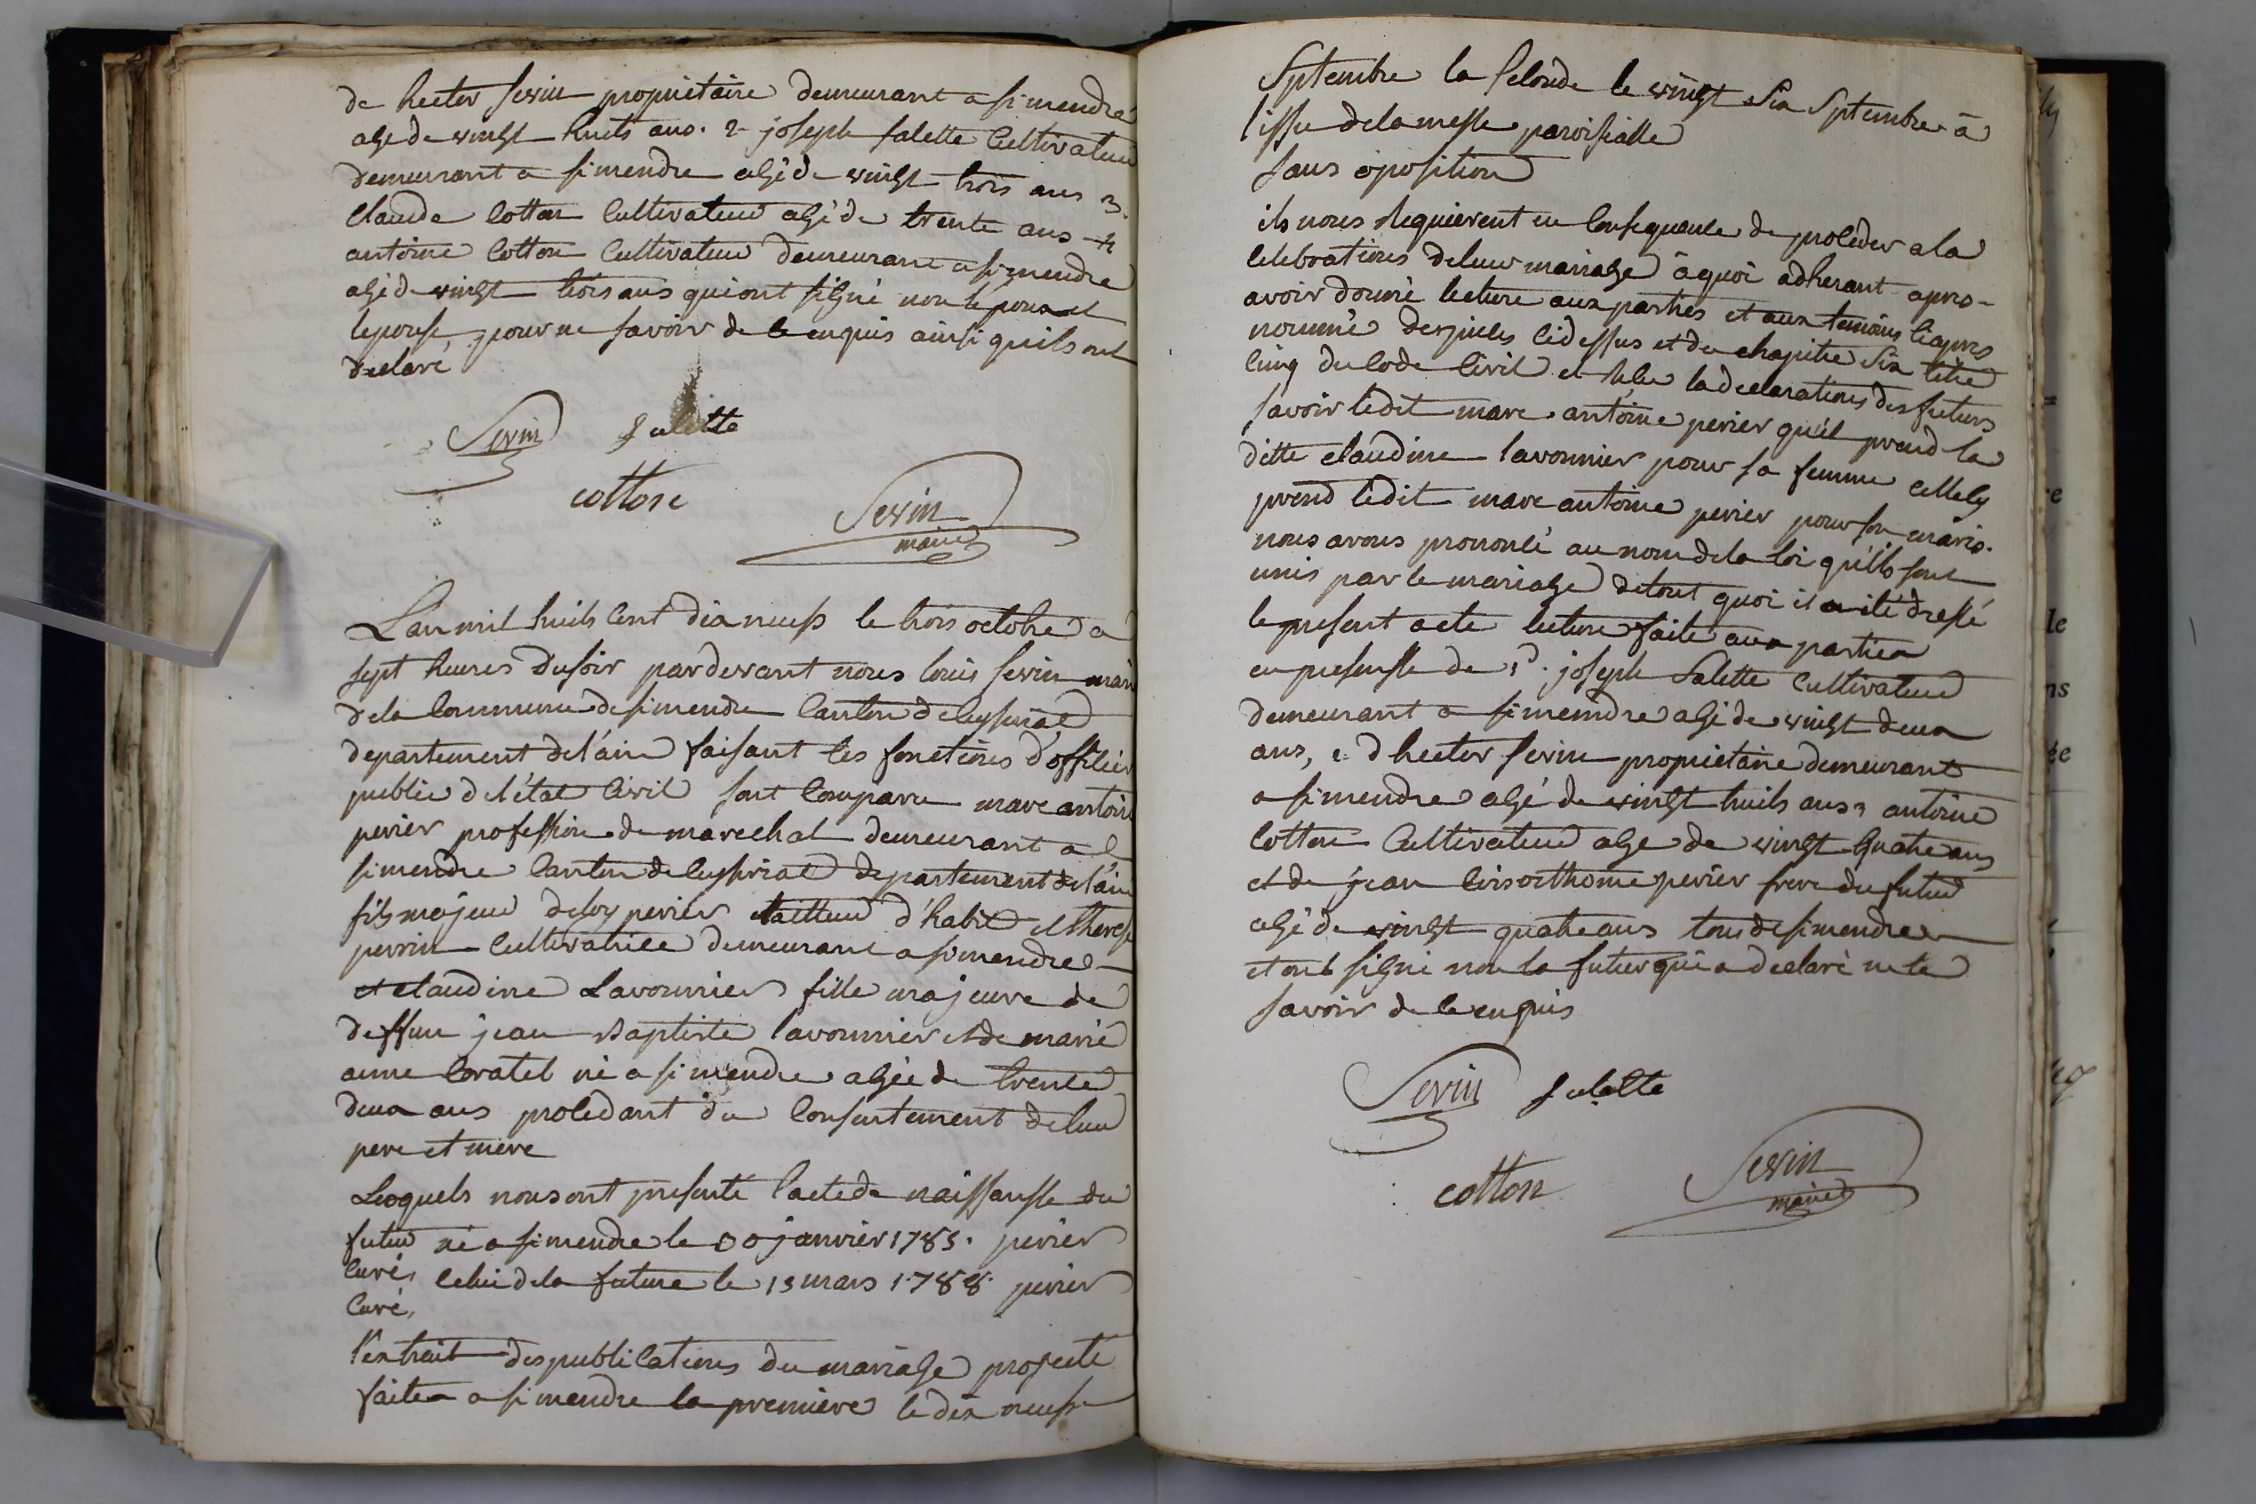 de hector sevin propriétaire demeurant a simendre
agé de vingt huits ans. 2 joseph salette Cultivateur
demeurant a simendre agé de vingt trois ans 3.
Claude Cotton Cultivateur agé de trente ans 4
antoine Cotton Cultivateur demeurant a simendre
agé de vingt trois ans qui ont signé non lepoux et
lepouse pour ne savoir de ce enquis ainsi quils ont
declaré
Sevin Salette
cotton
Sevin
maire
L'an mil huits Cent dix neufs le trois octobre a
sept heures du soir pardevant nous louis sevin maire
de la Commune de simendre Canton de Ceyseriat
departement de l'ain faisant les fonctions d'officier
public de l'état Civil sont Comparu marc antoine
perier profession de marechal demeurant a
simendre Canton de Ceyseriat departement de l'ain
fils majeur de loy perier tailleur d'habit et therese
perrin Cultivatrice demeurant a simendre
et claudine Lavonnier fille majeure de
deffun jean Baptiste lavonnier et de marie
anne Coratel né a simendre agée de trente
deux ans procédant du Consentement de leur
pere et mere
Lesquels nous ont presenté l'acte de naissansse du
futur né a simendre le 30 janvier 1785. perier
Curé, Celui de la future le 13 mars 1788. perier
Curé,
l'extrait des publications du mariage projetté
faites a simendre la premiere le dix neufs
Septembre la seconde le vingt six Septembre à
l'issue de la messe paroissialle
sans oposition
ils nous requierent en Consequence de proceder a la
Celebrations de leur mariage à quoi adherant apres
avoir donné lecture aux parties et aux temoins Ciapres
nommé des pieces Cidessus et du chapitre six titre
cinq du Code Civil et la declarations des futurs
savoir ledit marc antoine perier qu'il prend la
ditte claudine lavonnier pour sa femme cellecy
prend ledit marc antoine perier pour son maris.
nous avons prononcé au nom de la loi qu'ils sont
unis par le mariage de tout quoi il a été dressé
le present acte lecture faite aux parties
en presensse de 1°. joseph Salette Cultivateur
demeurant a simendre agé de vingt deux
ans, 2. d hector sevin propriétaire demeurant
a simendre agé de vingt huits ans 3 antoine
Cotton Cultivateur age de vingt quatre ans
et de jean Crisosthome perier frere du futur
agé de vingt quatre ans tous de simendre
et ont signé non la futur qui a declaré ne le
savoir de ce enquis
Sevin Salette
cotton
Sevin
maire